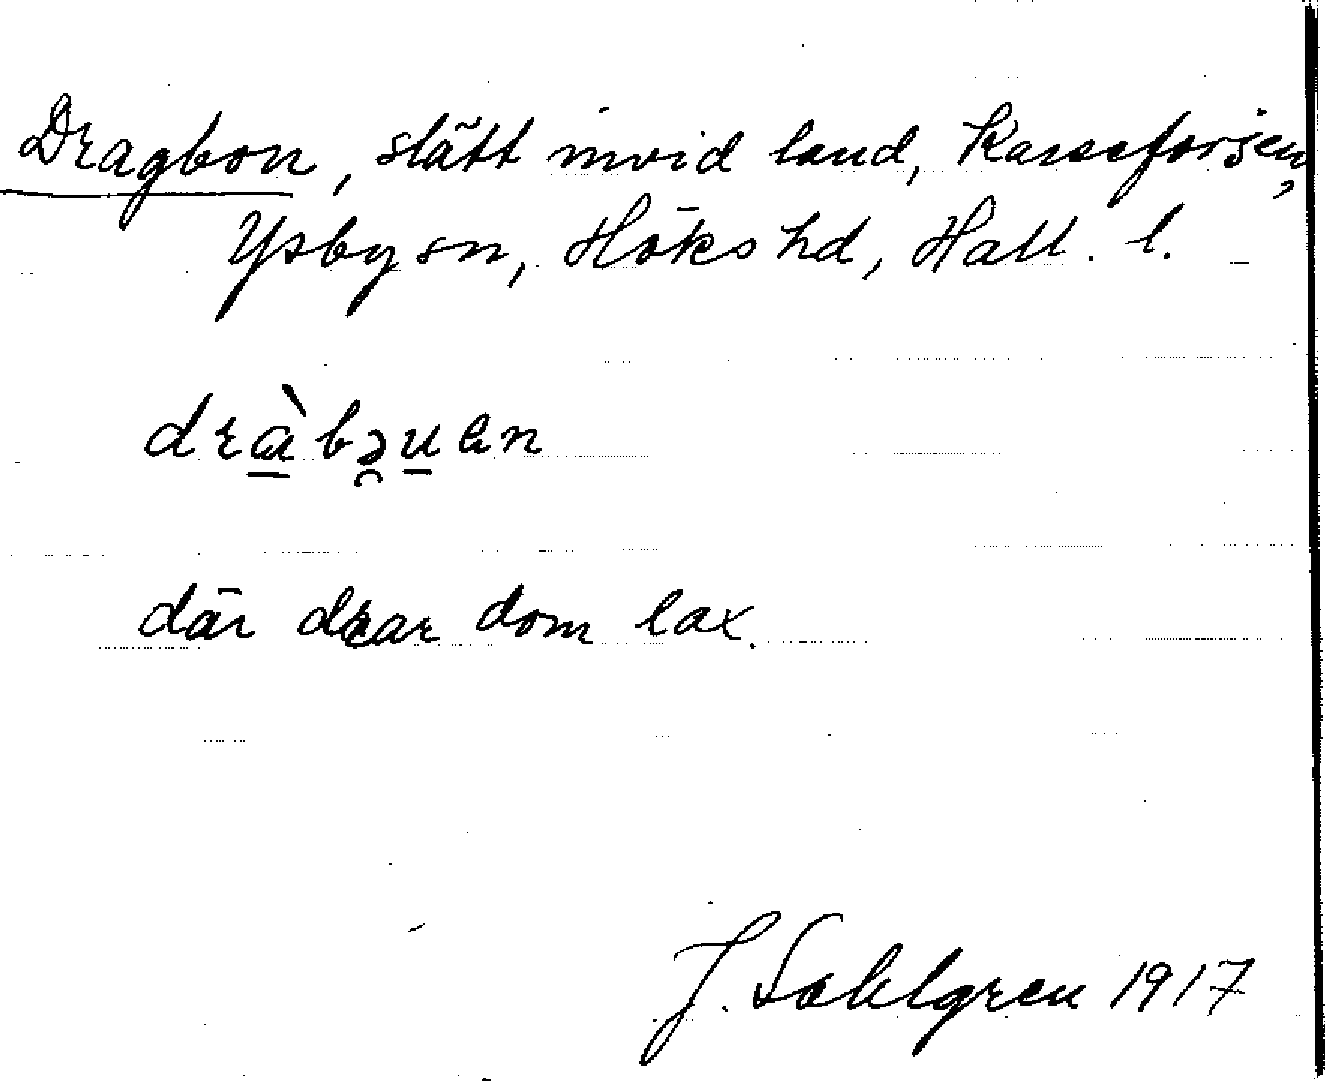 Dragbon, slätt invid land, Karseforsen,
Ysby sn, Höks hd, Hall. l.
drɑ̀bə̯uen
där drar dom lax.
J. Sahlgren 1917